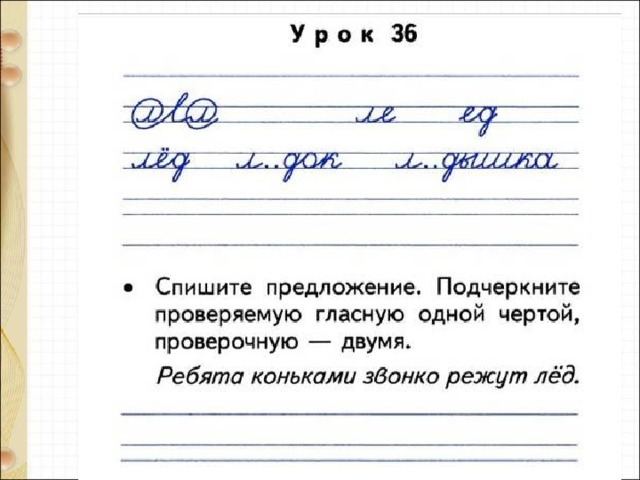 Урок 36
лвл ле ед
лёд л..док л..дышка
• Спишите предложение. Подчеркните
проверяемую гласную одной чертой,
проверочную — двумя.
Ребята коньками звонко режут лёд.